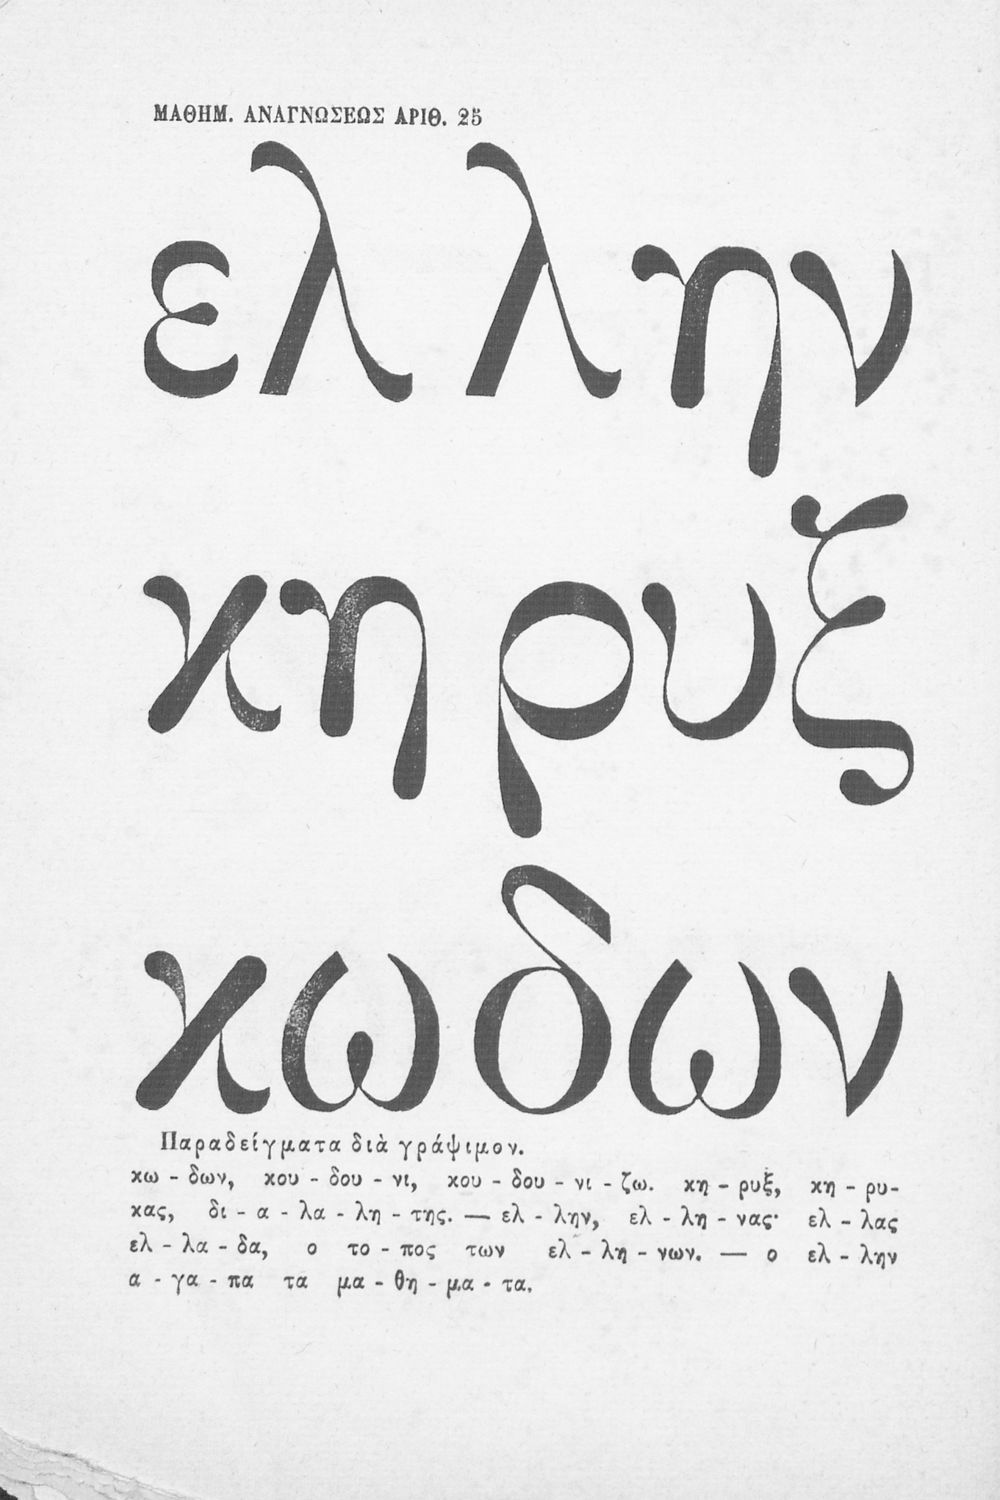 ΜΑΘΗΜ. ΑΝΑΓΝΩΣΕΩΣ ΑΡΙΘ. 25
ελ λην
κη ρυξ
κω δων
Παραδείγματα διὰ γράψιμον.
κω - δων, κου - δου - νι, κου - δου - νι - ζω. κη - ρυξ, κη - ρυ-
κας, δι - α - λα - λη - της. — ελ - λην, ελ - λη - νας· ελ - λας
ελ - λα - δα, ο το - πος των ελ - λη - νων. — ο ελ - λην
α - γα - πα τα μα - θη - μα - τα.